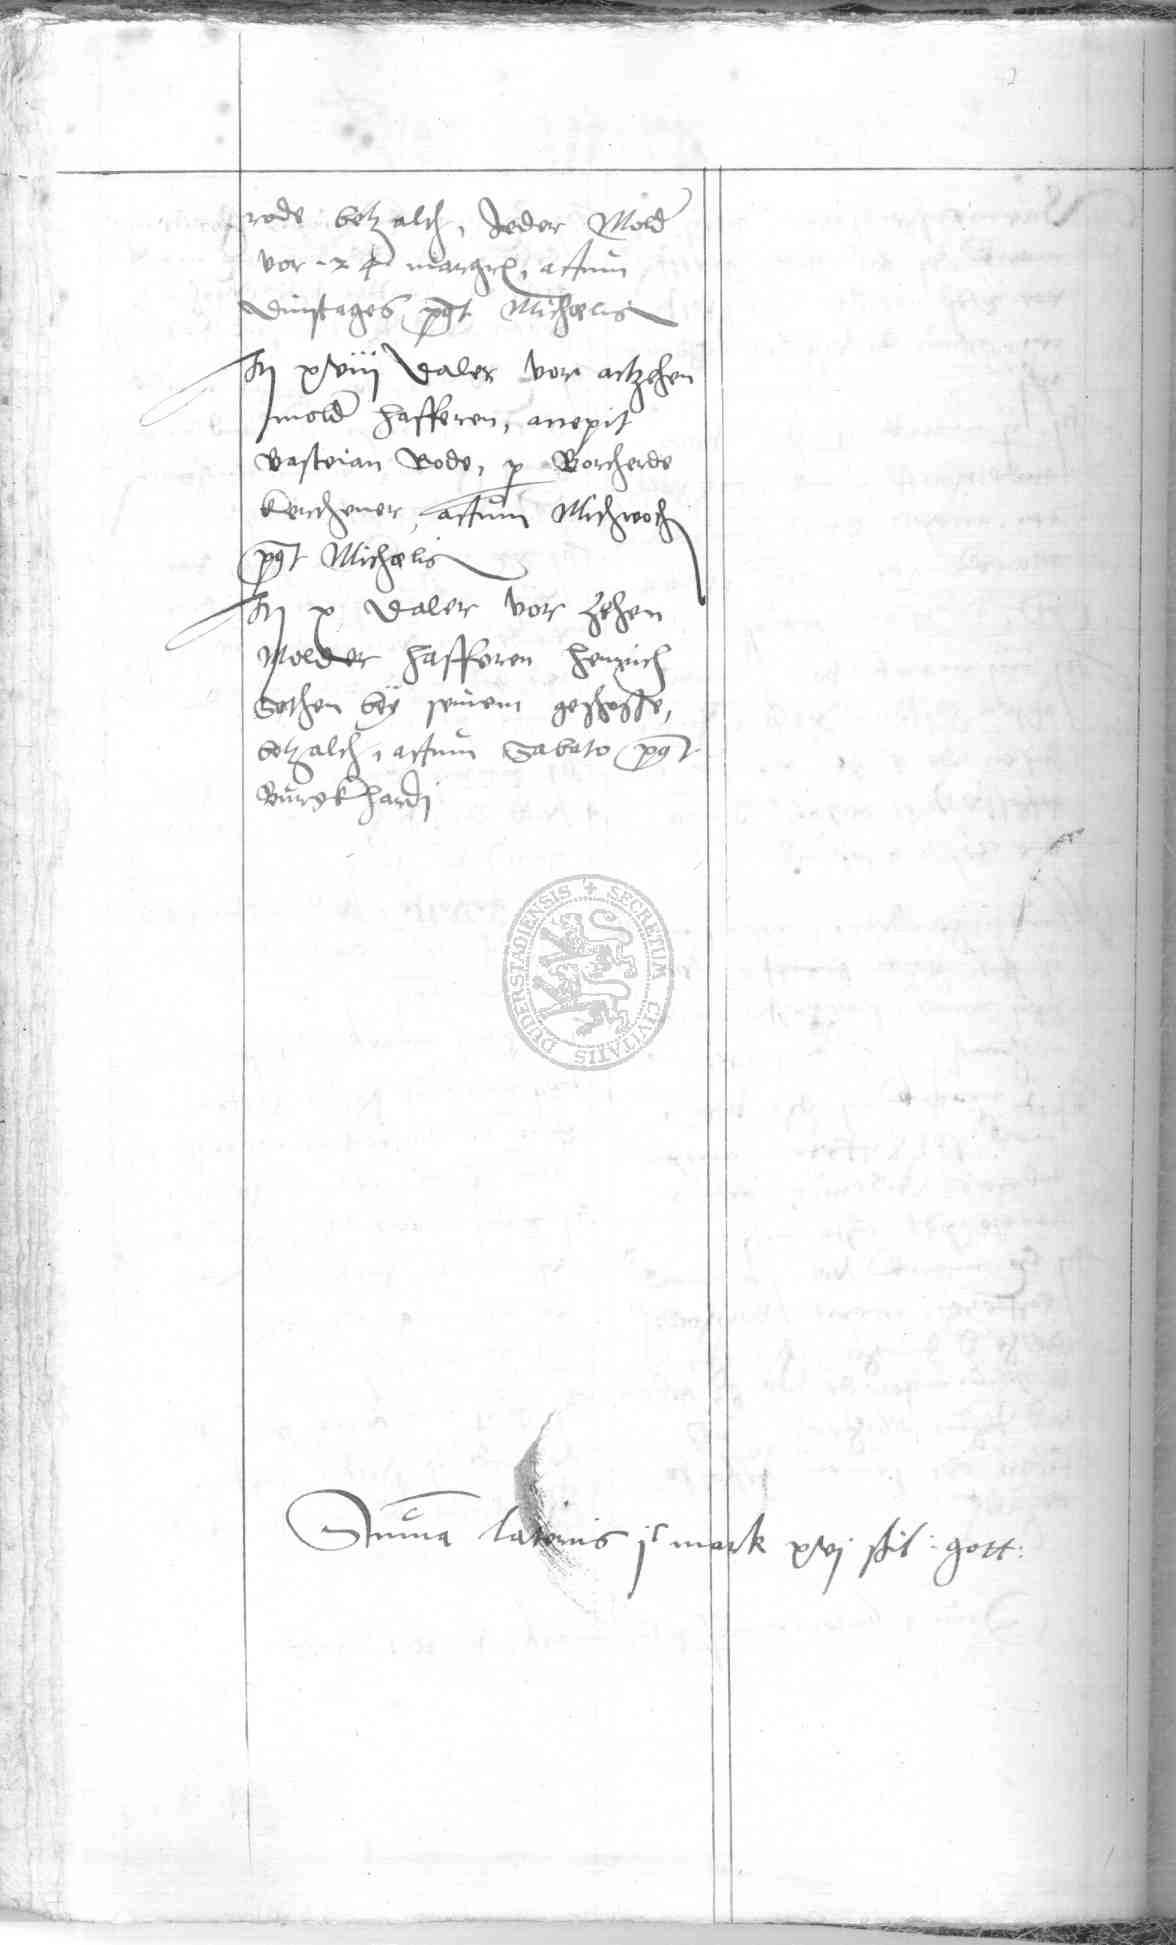 rode betzalch, Jeder Mold
vor margr, actum
Dinstages pqt Michaelis
It xviij Daler vor achzehen
mold hafferen, accepit
Bastian Rode, p Borcherde
Kerchener, actum Mithwoch
pqt Michaelis
It x Daler vor Zehen
Molder hafferen Henrich
Sothen bÿ seinem geschosse,
betzalch, actum Sabato pqt
Burgkhardj
SECRETUM CIVITATIS DUDERSTADIENSIS
Summa lateris jc mark xvj shil: gott: